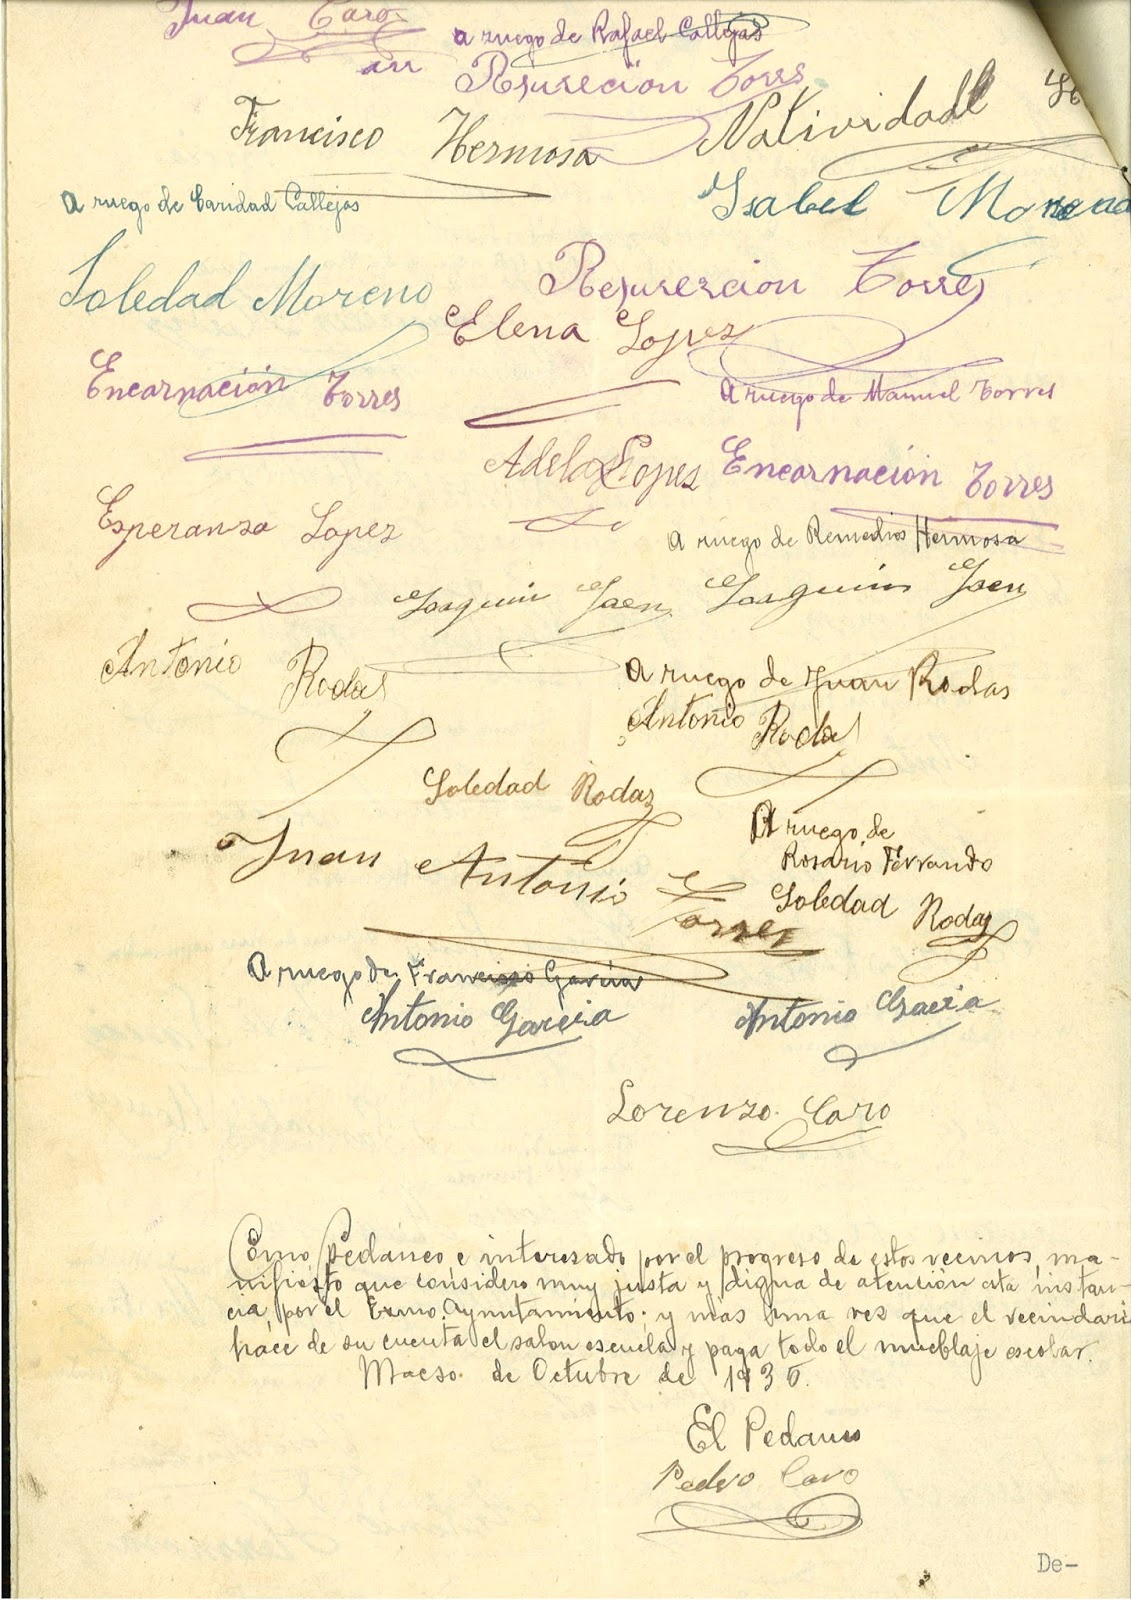 Juan Caro
a ruego de Rafael Callejas
Resureción Torres
Francisco Hermosa
Natividad
a ruego de Caridad Callejas
Isabel Moreno
Soledad Moreno
Resurercion Torres
Elena Lopez
Encarnación Torres
a ruego de Manuel Torres
Adela Lopez
Encarnación Torres
Esperansa Lopez
a ruego de Remedios Hermosa
Joaquin Jaen
Joaquin Jaen
Antonio Rodas
a ruego de Juan Rodas
Antonio Rodas
Soledad Rodaz
A ruego de
Rosario Ferrando
Juan Antonio Torres
Soledad Rodaz
A ruego de Francisco García
Antonio Garcia
Antonio Gacia
Lorenzo Caro
Como Pedáneo e interesado por el progreso de estos vecinos, ma-
nifiesto que considero muy justa y digna de atención esta instan-
cia, por el Exmo. Ayuntamiento; y mas una vez que el vecindari
hace de su cuenta el salon escuela y paga todo el mueblaje escolar.
de Octubre de 193
El Pedaneo
Pedro Caro
De-